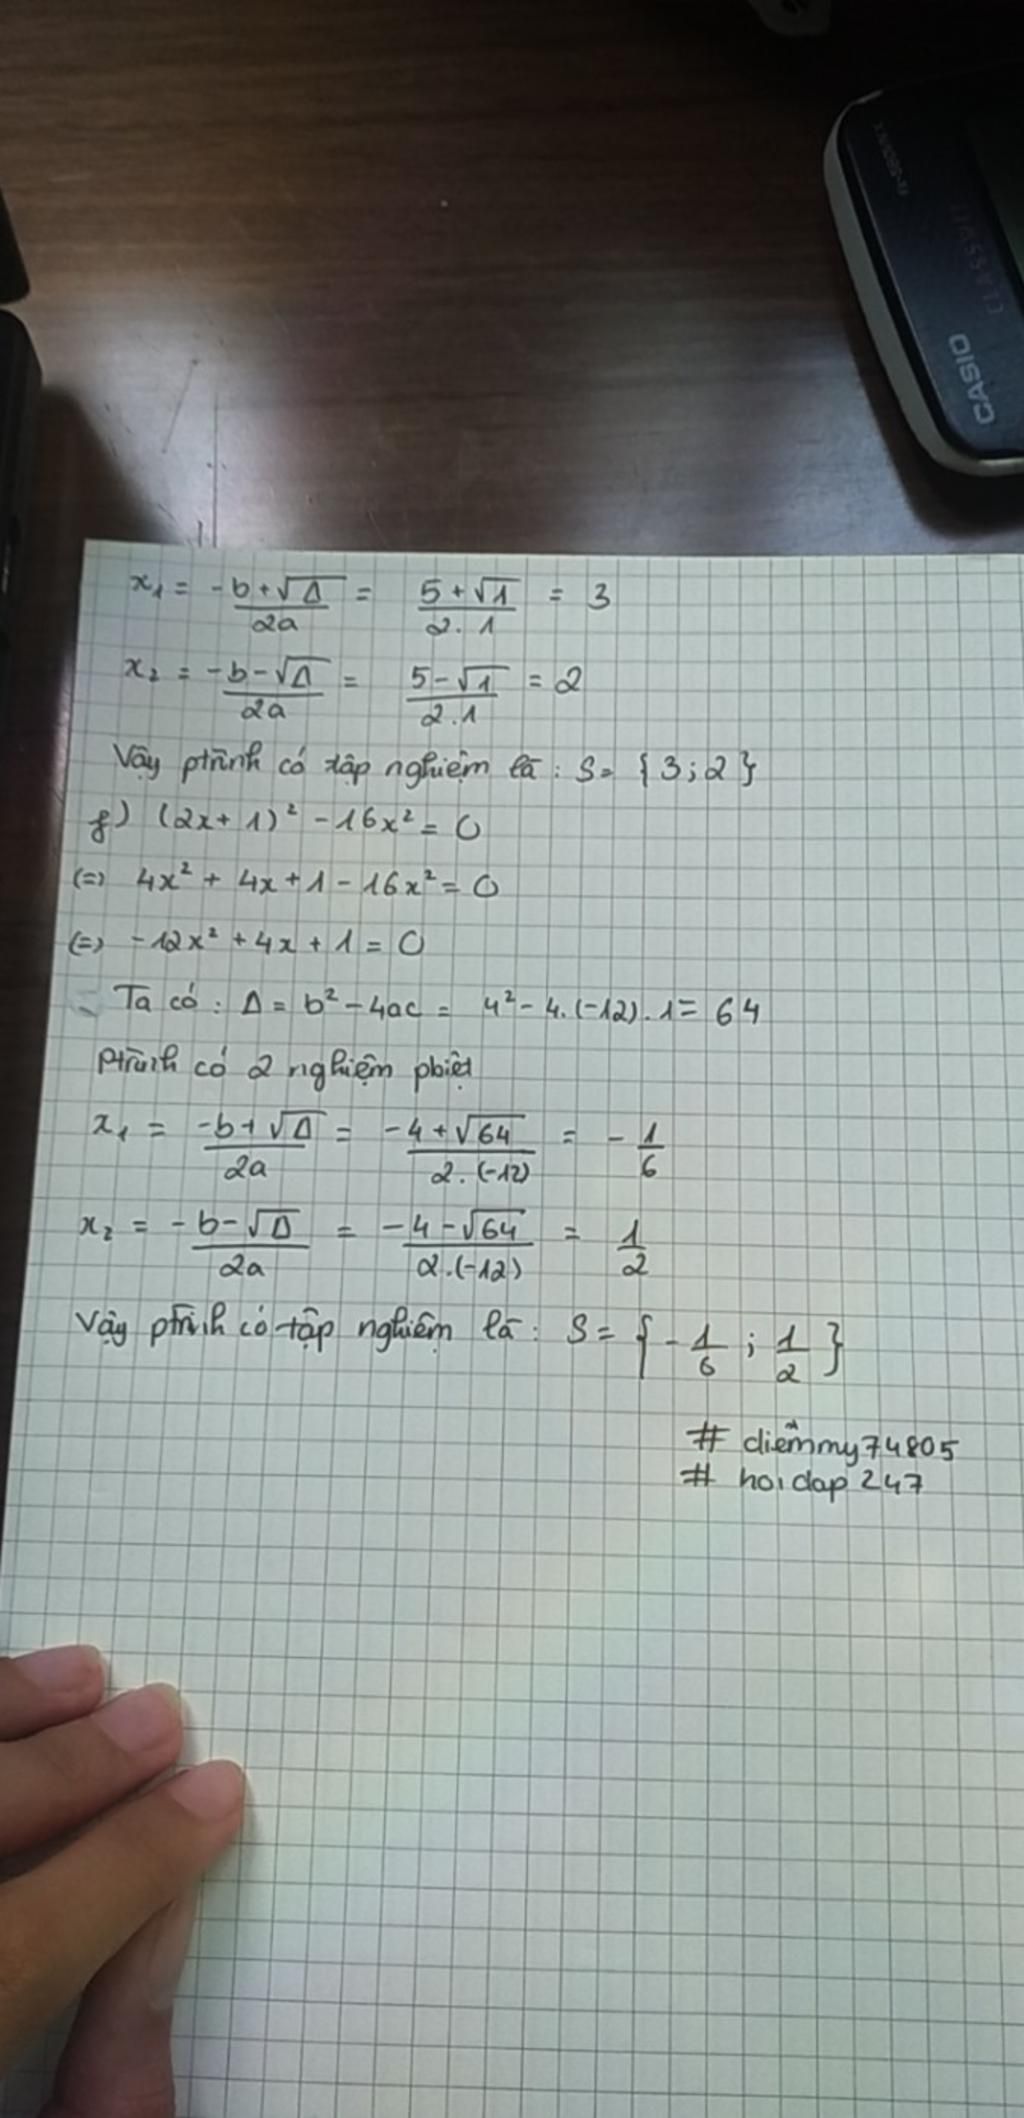 CASIO
CLASSWIZ
x₁ = -b+√Δ / 2a = 5+√1 / 2.1 = 3
x₂ = -b-√Δ / 2a = 5-√1 / 2.1 = 2
Vậy ptrình có tập nghiệm là : S = {3;2}
f) (2x+1)² - 16x² = 0
(=) 4x² + 4x + 1 - 16x² = 0
(=) -12x² + 4x + 1 = 0
- Ta có : Δ = b² - 4ac = 4² - 4.(-12).1 = 64
Ptrình có 2 nghiệm pbiệt
x₁ = -b+√Δ / 2a = -4+√64 / 2.(-12) = -1/6
x₂ = -b-√Δ / 2a = -4-√64 / 2.(-12) = 1/2
Vậy ptrình có tập nghiệm là : S = { -1/6 ; 1/2 }
# diễmmy74805
# hoidap247